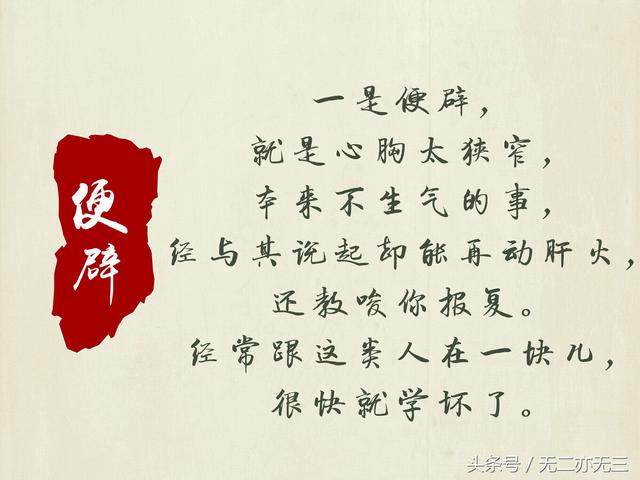 便辟
一是便辟，
就是心胸太狭窄，
本来不生气的事，
经与其说起却能再动肝火，
还教唆你报复。
经常跟这类人在一块儿，
很快就学坏了。
头条号／无二亦无三